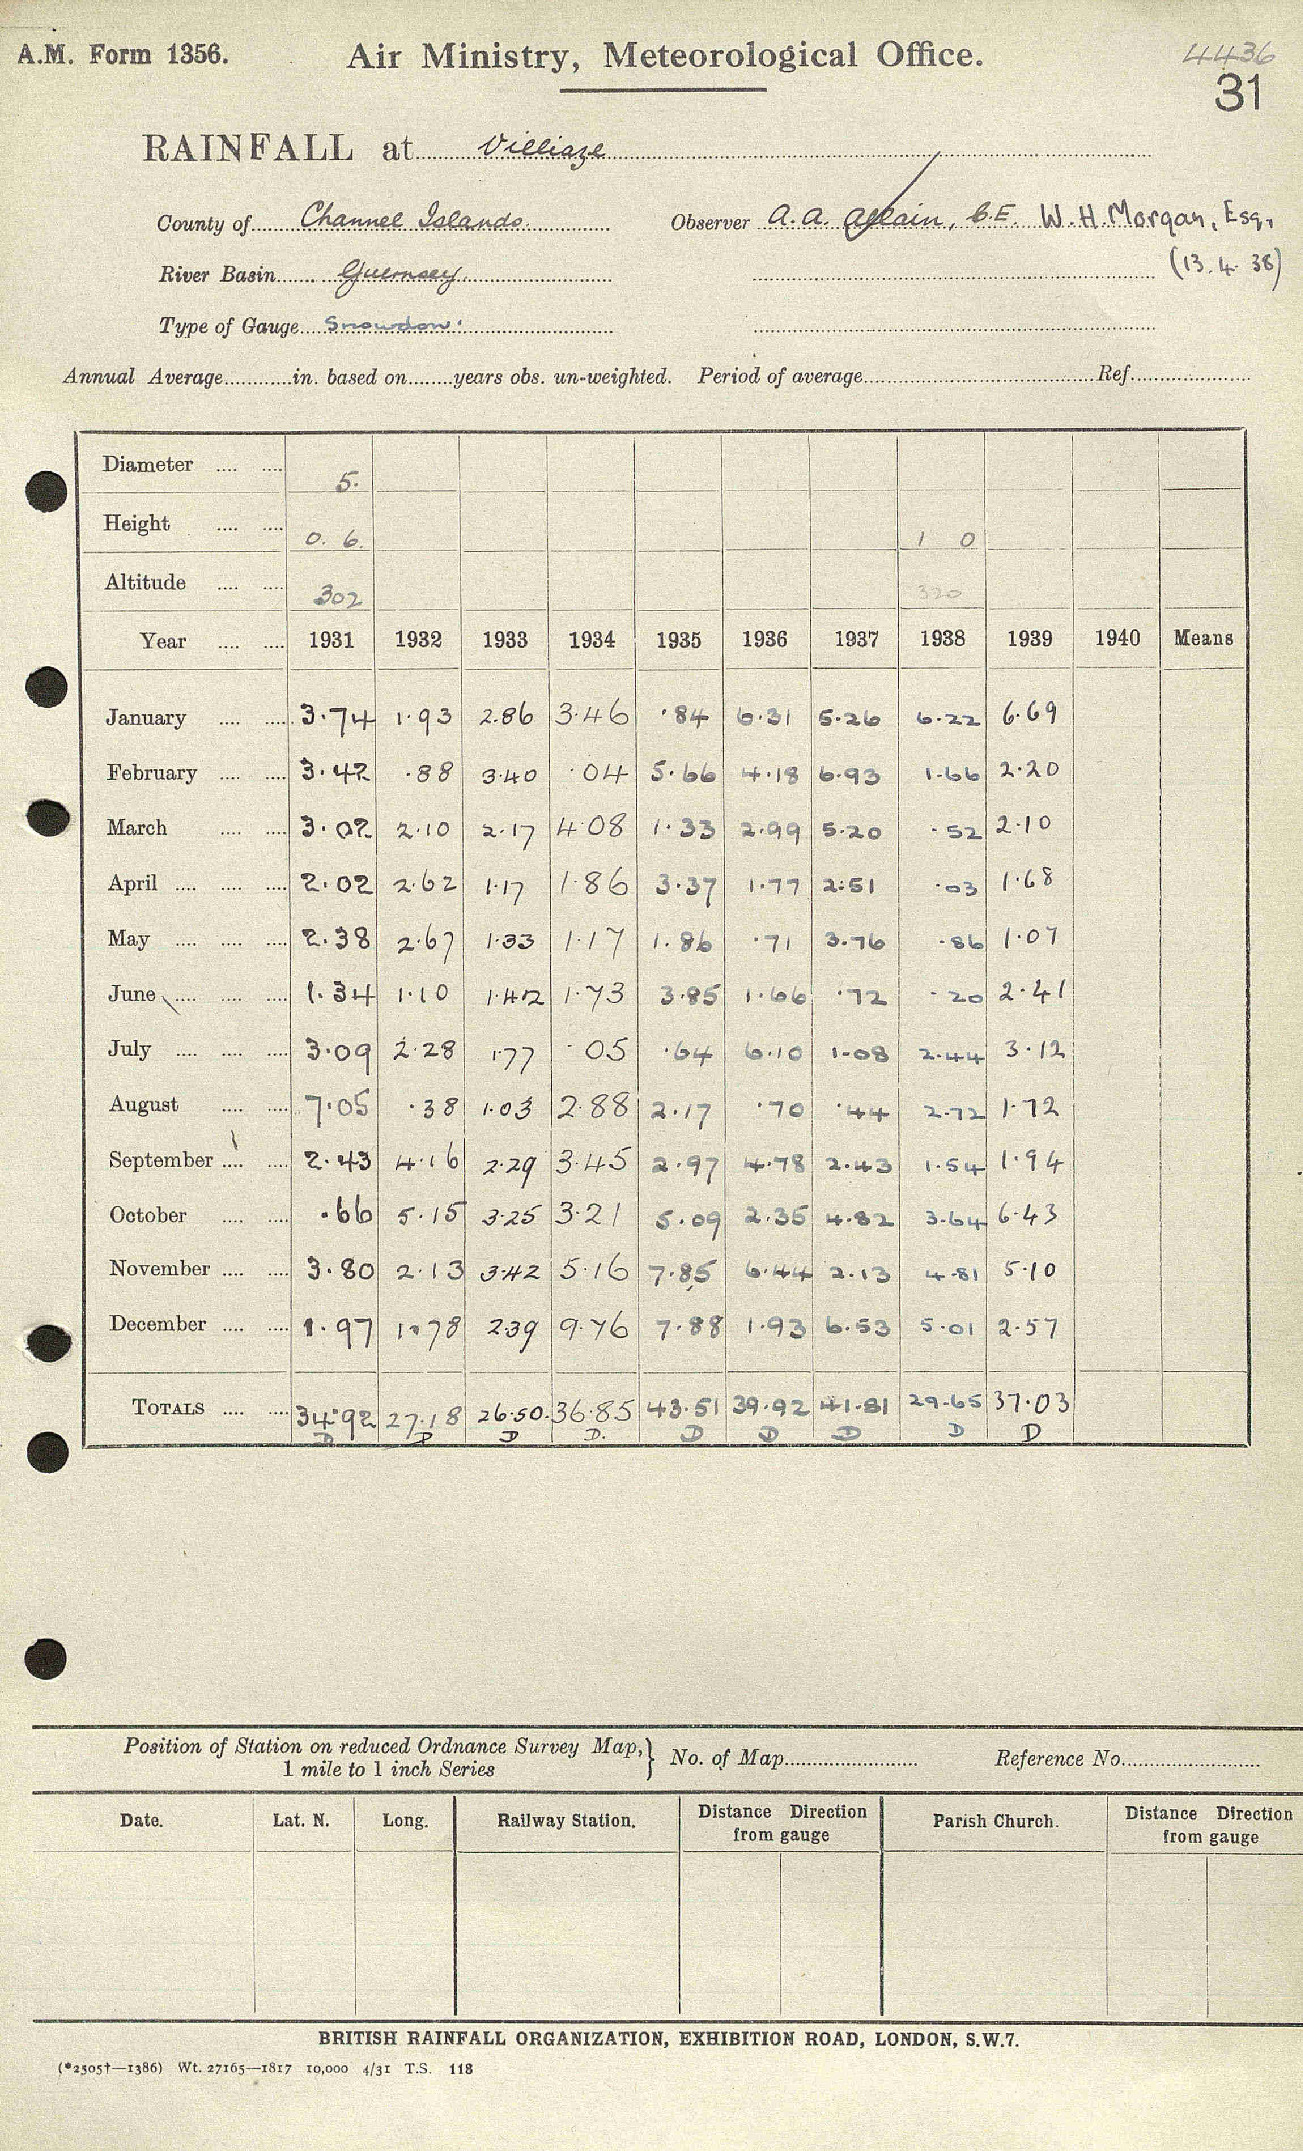 A.M. Form 1356. Air Ministry, Meteorological Office. 4436
31
RAINFALL at Villiaze
County of Channel Islands. Observer A. A. Allain, C.E. W. H. Morgan, Esq.,
River Basin Guernsey. (13.4.38)
Type of Gauge Snowdon.
Annual Average............in. based on........years obs. un-weighted. Period of average........Ref........
Diameter .... .... 5.
Height .... .... 0. 6. 1 0
Altitude .... .... 302 320
Year .... .... 1931 1932 1933 1934 1935 1936 1937 1938 1939 1940 Means
January .... .... 3.74 1.93 2.86 3.46 .84 6.31 5.26 6.22 6.69
February .... .... 3.42 .88 3.40 .04 5.66 4.18 6.93 1.66 2.20
March .... .... 3.02 2.10 2.17 4.08 1.33 2.99 5.20 .52 2.10
April .... .... .... 2.02 2.62 1.17 1.86 3.37 1.77 2.51 .03 1.68
May .... .... .... 2.38 2.67 1.33 1.17 1.86 .71 3.76 .86 1.07
June .... .... .... 1.34 1.10 1.42 1.73 3.85 1.66 .72 .20 2.41
July .... .... .... 3.09 2.28 1.77 .05 .64 6.10 1.08 2.44 3.12
August .... .... 7.05 .38 1.03 2.88 2.17 .70 .44 2.72 1.72
September .... .... 2.43 4.16 2.29 3.45 2.97 4.78 2.43 1.54 1.94
October .... .... .66 5.15 3.25 3.21 5.09 2.35 4.82 3.64 6.43
November .... .... 3.80 2.13 3.42 5.16 7.85 6.44 2.13 4.81 5.10
December .... .... 1.97 1.78 2.39 9.76 7.88 1.93 6.53 5.01 2.57
TOTALS .... .... 34.92 27.18 26.50. 36.85 43.51 39.92 41.81 29.65 37.03
D D D D. D D D D D
Position of Station on reduced Ordnance Survey Map, } No. of Map........ Reference No........
1 mile to 1 inch Series
Date. Lat. N. Long. Railway Station. Distance Direction Parish Church. Distance Direction
from gauge from gauge
BRITISH RAINFALL ORGANIZATION, EXHIBITION ROAD, LONDON, S.W.7.
(*2505†—1386) Wt. 27165—1817 10,000 4/31 T.S. 118